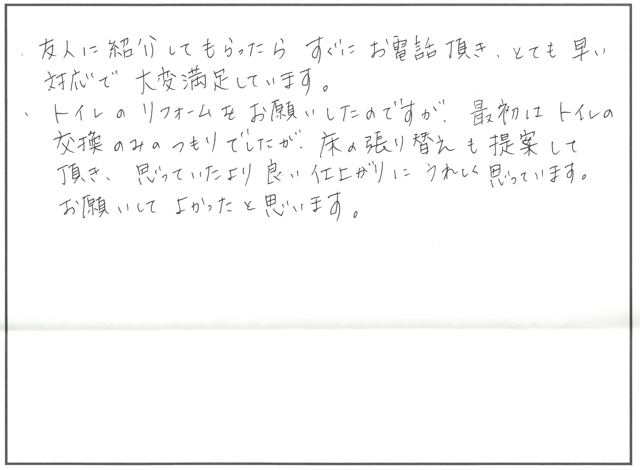 ・友人に紹介してもらったら すぐに お電話頂き、とても 早い
対応で 大変満足しています。
・トイレの リフォームを お願いしたのですが、最初は トイレの
交換のみのつもりでしたが、床の張り替えも 提案して
頂き、思っていたより 良い 仕上がりに うれしく 思っています。
お願いして よかったと思います。